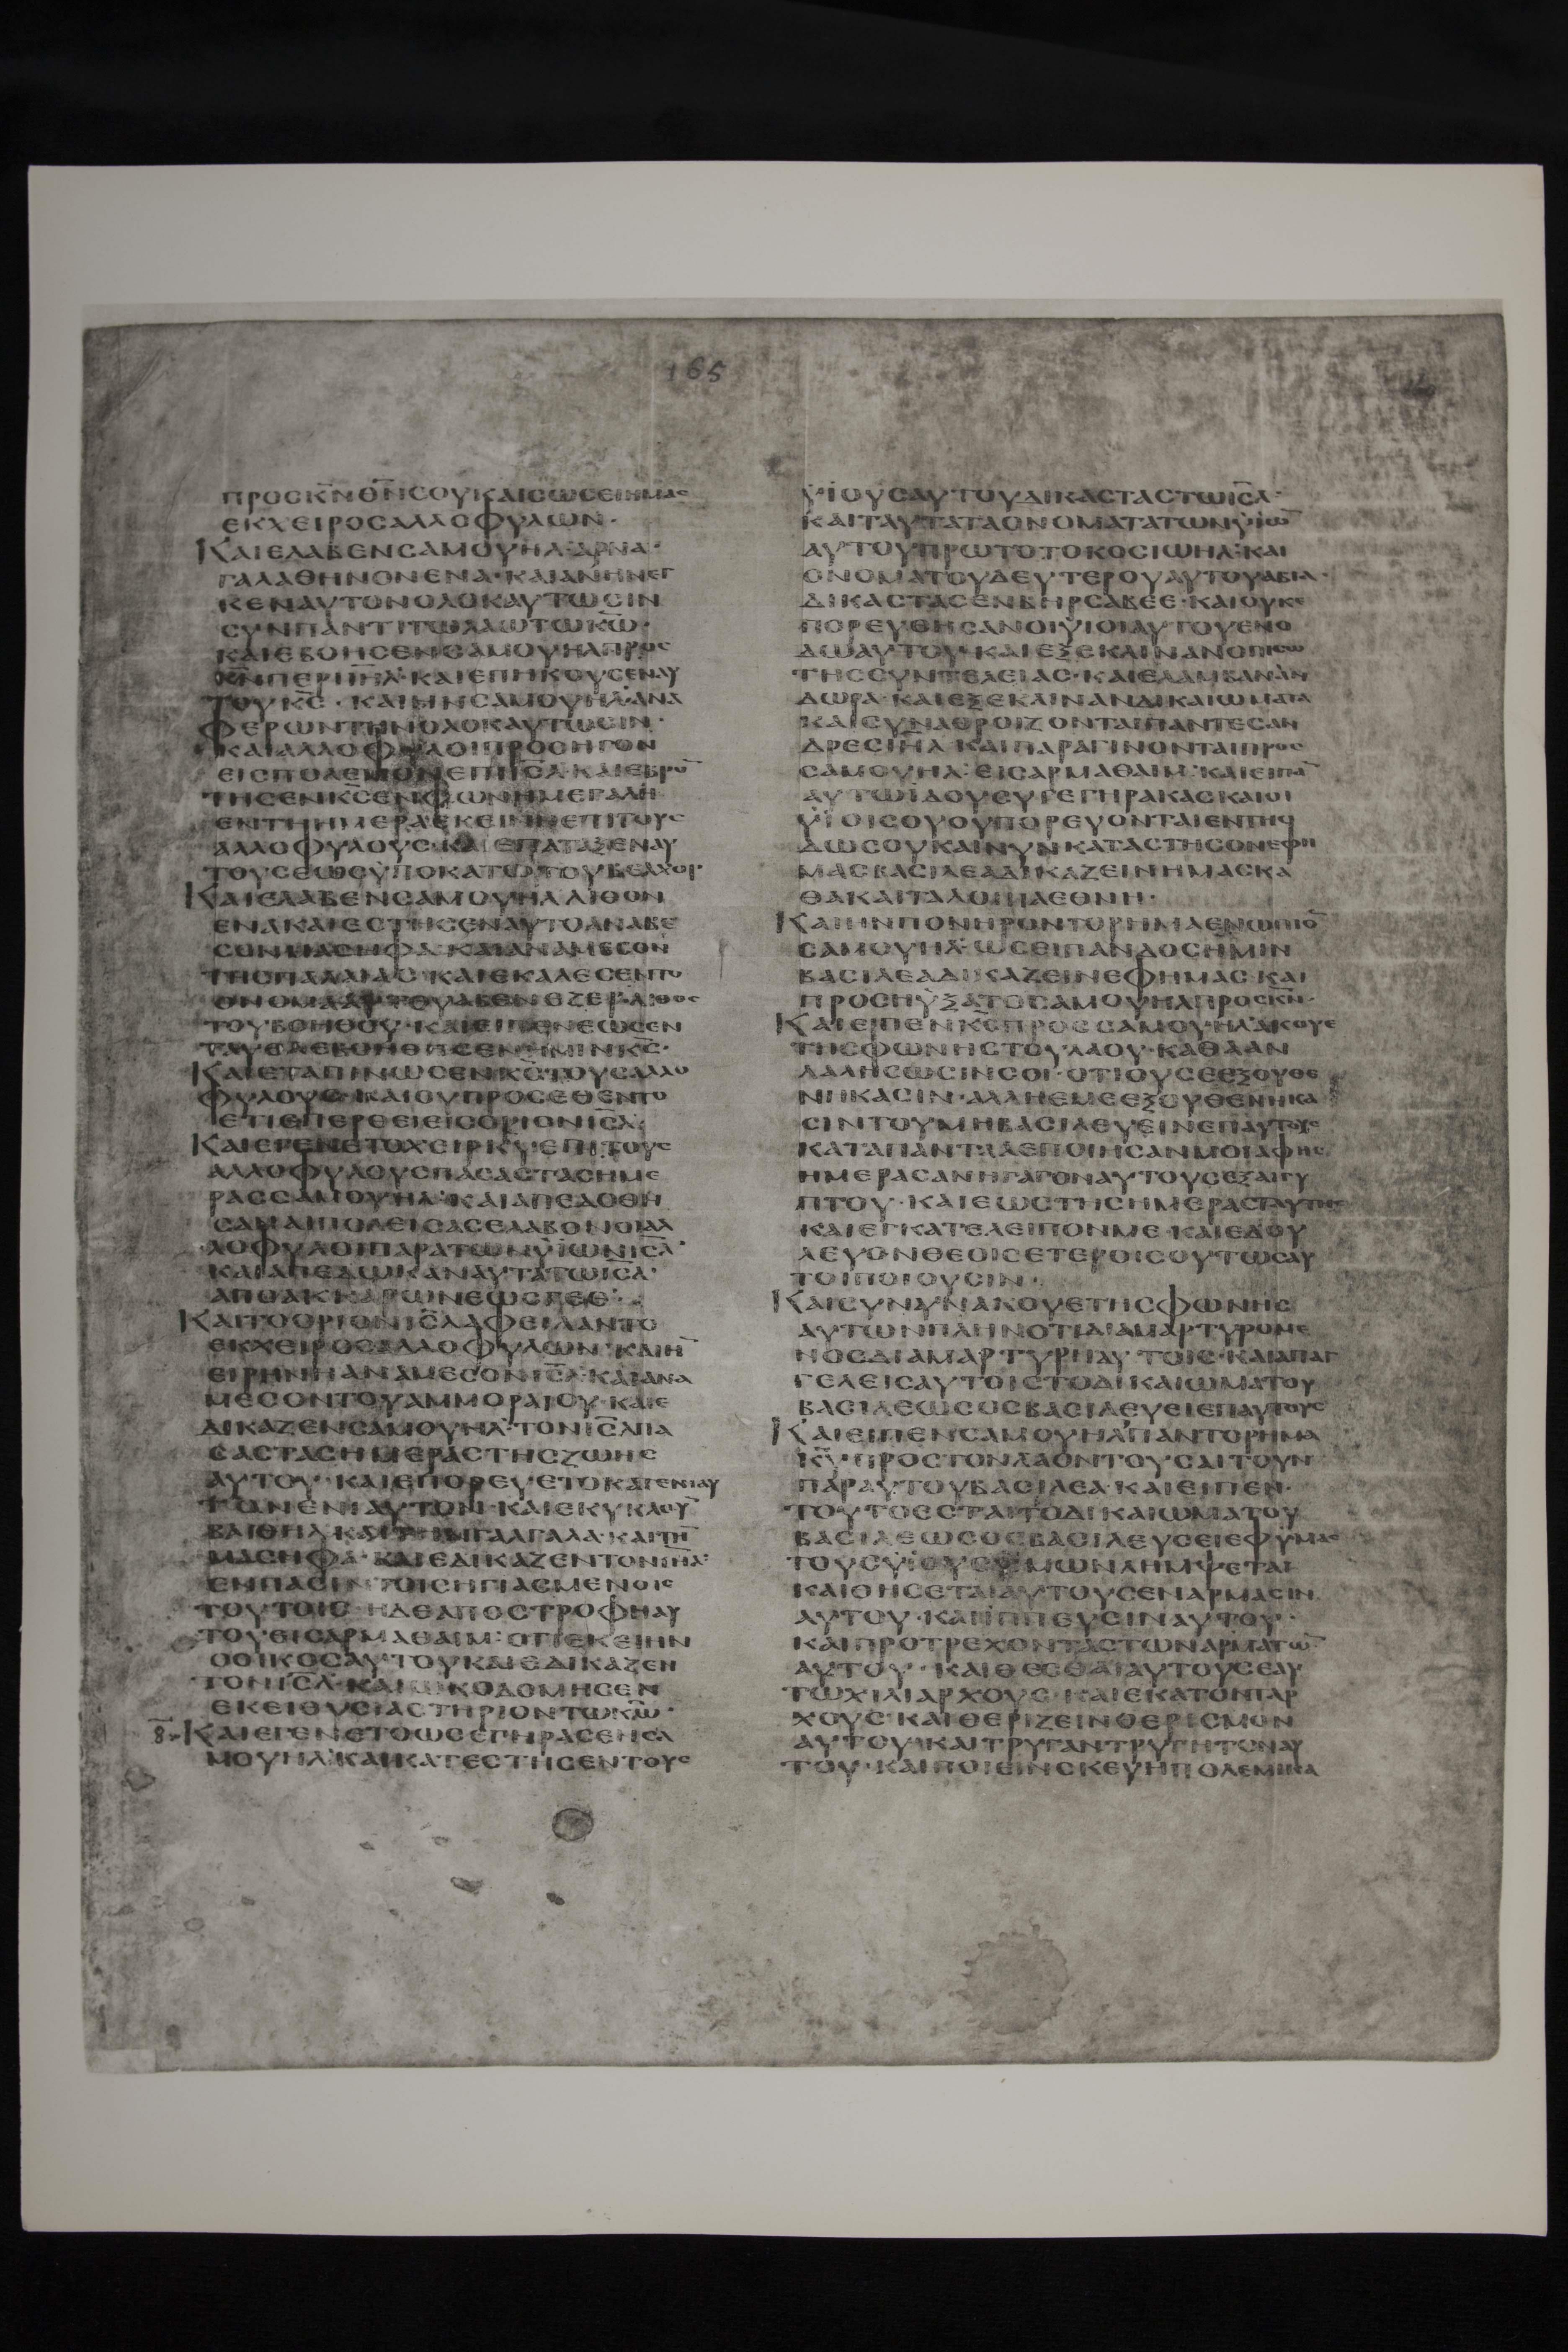 165
ΠΡΟϹΚ̅Ν̅Θ̅Ν̅ϹΟΥΚΑΙϹΩϹΕΙΗΜΑϹ
ΕΚΧΕΙΡΟϹΑΛΛΟΦΥΛΩΝ·
ΚΑΙΕΛΑΒΕΝϹΑΜΟΥΗΛ·ΑΡΝΑ·
ΓΑΛΑΘΗΝΟΝΕΝΑ·ΚΑΙΑΝΗΝΕΓ
ΚΕΝΑΥΤΟΝΟΛΟΚΑΥΤΩϹΙΝ
ϹΥΝΠΑΝΤΙΤΩΛΑΩΤΩΚ̅Ω̅·
ΚΑΙΕΒΟΗϹΕΝϹΑΜΟΥΗΛΠΡΟϹ
Κ̅Ν̅ΠΕΡΙΙ̅Η̅Λ̅·ΚΑΙΕΠΗΚΟΥϹΕΝΑΥ
ΤΟΥΚ̅Ϲ̅·ΚΑΙΗΝϹΑΜΟΥΗΛ·ΑΝΑ
ΦΕΡΩΝΤΗΝΟΛΟΚΑΥΤΩϹΙΝ·
ΚΑΙΑΛΛΟΦΥΛΟΙΠΡΟϹΗΓΟΝ
ΕΙϹΠΟΛΕΜΟΝΕΠΙΙ̅Ϲ̅Λ̅·ΚΑΙΕΒΡΟ̅
ΤΗϹΕΝΚ̅Ϲ̅ΕΝΦΩΝΗΜΕΓΑΛΗ
ΕΝΤΗΗΜΕΡΑΕΚΕΙΝΗΕΠΙΤΟΥϹ
ΑΛΛΟΦΥΛΟΥϹ·ΚΑΙΕΠΑΤΑΞΕΝΑΥ
ΤΟΥϹΕΩϹΫΠΟΚΑΤΩΤΟΥΒΕΛΧΟΡ·
ΚΑΙΕΛΑΒΕΝϹΑΜΟΥΗΛΛΙΘΟΝ
ΕΝΑΚΑΙΕϹΤΗϹΕΝΑΥΤΟΑΝΑΒΕ
ϹΟΝΜΑϹΗΦΑ·ΚΑΙΑΝΑΜΕϹΟΝ
ΤΗϹΠΑΛΑΙΑϹ·ΚΑΙΕΚΑΛΕϹΕΝΤΟ
ΟΝΟΜΑΑΥΤΟΥΑΒΕΝΕΖΕΡ·ΛΙΘΟϹ
ΤΟΥΒΟΗΘΟΥ·ΚΑΙΕΙΠΕΝΕΩϹΕΝ
ΤΑΥΘΑΕΒΟΗΘΗϹΕΝΗΜΙΝΚ̅Ϲ̅·
ΚΑΙΕΤΑΠΙΝΩϹΕΝΚ̅Ϲ̅ΤΟΥϹΑΛΛΟ
ΦΥΛΟΥϹ·ΚΑΙΟΥΠΡΟϹΕΘΕΝΤΟ
ΕΤΙΕΠΕΡΘΕΙΕΙϹΟΡΙΟΝΙ̅Ϲ̅Λ̅·
ΚΑΙΕΓΕΝΕΤΟΧΕΙΡΚ̅Υ̅ΕΠΙΤΟΥϹ
ΑΛΛΟΦΥΛΟΥϹΠΑϹΑϹΤΑϹΗΜΕ
ΡΑϹϹΑΜΟΥΗΛ·ΚΑΙΑΠΕΔΟΘΗ
ϹΑΝΑΙΠΟΛΕΙϹΑϹΕΛΑΒΟΝΟΙΑΛ
ΛΟΦΥΛΟΙΠΑΡΑΤΩΝΫΙΩΝΙ̅Ϲ̅Λ̅·
ΚΑΙΑΠΕΔΩΚΑΝΑΥΤΑΤΩΙ̅Ϲ̅Λ̅·
ΑΠΟΑΚΚΑΡΩΝΕΩϹΓΕΘ·
ΚΑΙΤΟΟΡΙΟΝΙ̅Ϲ̅Λ̅ΑΦΕΙΛΑΝΤΟ
ΕΚΧΕΙΡΟϹΑΛΛΟΦΥΛΩΝ·ΚΑΙΗ̅
ΕΙΡΗΝΗΑΝΑΜΕϹΟΝΙ̅Ϲ̅Λ̅·ΚΑΙΑΝΑ
ΜΕϹΟΝΤΟΥΑΜΜΟΡΑΙΟΥ·ΚΑΙΕ
ΔΙΚΑΖΕΝϹΑΜΟΥΗΛ·ΤΟΝΙ̅Ϲ̅Λ̅ΠΑ
ϹΑϹΤΑϹΗΜΕΡΑϹΤΗϹΖΩΗϹ
ΑΥΤΟΥ·ΚΑΙΕΠΟΡΕΥΕΤΟΚΑΤΕΝΙΑΥ
ΤΟΝΕΝΙΑΥΤΟΝ·ΚΑΙΕΚΥΚΛΟΥ̅
ΒΑΙΘΗΛΚΑΙΤΗΝΓΑΛΓΑΛΑ·ΚΑΙΤΗ̅
ΜΑϹΗΦΑ·ΚΑΙΕΔΙΚΑΖΕΝΤΟΝΙ̅Η̅Λ̅·
ΕΝΠΑϹΙΝΤΟΙϹΗΓΙΑϹΜΕΝΟΙϹ
ΤΟΥΤΟΙϹ·ΗΔΕΑΠΟϹΤΡΟΦΗΑΥ
ΤΟΥΕΙϹΑΡΜΑΘΑΙΜ·ΟΤΙΕΚΕΙΗΝ
ΟΟΙΚΟϹΑΥΤΟΥΚΑΙΕΔΙΚΑΖΕΝ
ΤΟΝΙ̅Ϲ̅Λ̅·ΚΑΙΩΚΟΔΟΜΗϹΕΝ
ΕΚΕΙΘΥϹΙΑϹΤΗΡΙΟΝΤΩΚ̅Ω̅·
8.ΚΑΙΕΓΕΝΕΤΟΩϹΕΓΗΡΑϹΕΝϹΑ
ΜΟΥΗΛ·ΚΑΙΚΑΤΕϹΤΗϹΕΝΤΟΥϹ
ΫΙΟΥϹΑΥΤΟΥΔΙΚΑϹΤΑϹΤΩΙ̅Ϲ̅Λ̅·
ΚΑΙΤΑΥΤΑΤΑΟΝΟΜΑΤΑΤΩΝΫΙΩ̅
ΑΥΤΟΥΠΡΩΤΟΤΟΚΟϹΙΩΗΛ·ΚΑΙ
ΟΝΟΜΑΤΟΥΔΕΥΤΕΡΟΥΑΥΤΟΥΑΒΙΑ·
ΔΙΚΑϹΤΑϹΕΝΒΗΡϹΑΒΕΕ·ΚΑΙΟΥΚΕ
ΠΟΡΕΥΘΗϹΑΝΟΙΫΙΟΙΑΥΤΟΥΕΝΟ
ΔΩΑΥΤΟΥ·ΚΑΙΕΞΕΚΛΙΝΑΝΟΠΙϹΩ
ΤΗϹϹΥΝΤΕΛΕΙΑϹ·ΚΑΙΕΛΑΜΒΑΝΑΝ
ΔΩΡΑ·ΚΑΙΕΞΕΚΛΙΝΑΝΔΙΚΑΙΩΜΑΤΑ
ΚΑΙϹΥΝΑΘΡΟΙΖΟΝΤΑΙΠΑΝΤΕϹΑΝ
ΔΡΕϹΙ̅Η̅Λ̅·ΚΑΙΠΑΡΑΓΙΝΟΝΤΑΙΠΡΟϹ
ϹΑΜΟΥΗΛ·ΕΙϹΑΡΜΑΘΑΙΜ·ΚΑΙΕΙΠΑ̅
ΑΥΤΩΙΔΟΥϹΥΓΕΓΗΡΑΚΑϹΚΑΙΟΙ
ΫΙΟΙϹΟΥΟΥΠΟΡΕΥΟΝΤΑΙΕΝΤΗΟ
ΔΩϹΟΥΚΑΙΝΥΝΚΑΤΑϹΤΗϹΟΝΕΦΗ
ΜΑϹΒΑϹΙΛΕΑΔΙΚΑΖΕΙΝΗΜΑϹΚΑ
ΘΑΚΑΙΤΑΛΟΙΠΑΕΘΝΗ·
ΚΑΙΗΝΠΟΝΗΡΟΝΤΟΡΗΜΑΕΝΩΠΙΟ̅
ϹΑΜΟΥΗΛ·ΩϹΕΙΠΑΝΔΟϹΗΜΙΝ
ΒΑϹΙΛΕΑΔΙΚΑΖΕΙΝΕΦΗΜΑϹ·ΚΑΙ
ΠΡΟϹΗΥΞΑΤΟϹΑΜΟΥΗΛΠΡΟϹΚ̅Ν̅·
ΚΑΙΕΙΠΕΝΚ̅Ϲ̅ΠΡΟϹϹΑΜΟΥΗΛ·ΑΚΟΥΕ
ΤΗϹΦΩΝΗϹΤΟΥΛΑΟΥ·ΚΑΘΑΑΝ
ΛΑΛΗϹΩϹΙΝϹΟΙ·ΟΤΙΟΥϹΕΕΞΟΥΘΕ
ΝΗΚΑϹΙΝ·ΑΛΛΗΕΜΕΕΞΟΥΘΕΝΗΚΑ
ϹΙΝΤΟΥΜΗΒΑϹΙΛΕΥΕΙΝΕΠΑΥΤΟΥϹ
ΚΑΤΑΠΑΝΤΑΑΕΠΟΙΗϹΑΝΜΟΙΑΦΗϹ
ΗΜΕΡΑϹΑΝΗΓΑΓΟΝΑΥΤΟΥϹΕΞΑΙΓΥ
ΠΤΟΥ·ΚΑΙΕΩϹΤΗϹΗΜΕΡΑϹΤΑΥΤΗϹ
ΚΑΙΕΓΚΑΤΕΛΕΙΠΟΝΜΕ·ΚΑΙΕΔΟΥ
ΛΕΥΟΝΘΕΟΙϹΕΤΕΡΟΙϹΟΥΤΩϹΑΥ
ΤΟΙΠΟΙΟΥϹΙΝ·
ΚΑΙϹΥΝΥΝΑΚΟΥΕΤΗϹΦΩΝΗϹ
ΑΥΤΩΝΠΛΗΝΟΤΙΔΙΑΜΑΡΤΥΡΟΜΕ
ΝΟϹΔΙΑΜΑΡΤΥΡΗΑΥΤΟΙϹ·ΚΑΙΑΠΑΓ
ΓΕΛΕΙϹΑΥΤΟΙϹΤΟΔΙΚΑΙΩΜΑΤΟΥ
ΒΑϹΙΛΕΩϹΟϹΒΑϹΙΛΕΥϹΙΕΠΑΥΤΟΥϹ
ΚΑΙΕΙΠΕΝϹΑΜΟΥΗΛΠΑΝΤΟΡΗΜΑ
Κ̅Υ̅·ΠΡΟϹΤΟΝΛΑΟΝΤΟΥϹΑΙΤΟΥΝ
ΠΑΡΑΥΤΟΥΒΑϹΙΛΕΑ·ΚΑΙΕΙΠΕΝ·
ΤΟΥΤΟΕϹΤΑΙΤΟΔΙΚΑΙΩΜΑΤΟΥ
ΒΑϹΙΛΕΩϹΟϹΒΑϹΙΛΕΥϹΕΙΕΦΫΜΑϹ
ΤΟΥϹΥΙΟΥϹΫΜΩΝΛΗΜΨΕΤΑΙ
ΚΑΙΘΗϹΕΤΑΙΑΥΤΟΥϹΕΝΑΡΜΑϹΙΝ
ΑΥΤΟΥ·ΚΑΙΙΠΠΕΥϹΙΝΑΥΤΟΥ·
ΚΑΙΠΡΟΤΡΕΧΟΝΤΑϹΤΩΝΑΡΜΑΤΩ̅
ΑΥΤΟΥ·ΚΑΙΘΕϹΘΑΙΑΥΤΟΥϹΕΑΥ
ΤΩΧΙΛΙΑΡΧΟΥϹ·ΚΑΙΕΚΑΤΟΝΤΑΡ
ΧΟΥϹ·ΚΑΙΘΕΡΙΖΕΙΝΘΕΡΙϹΜΟΝ
ΑΥΤΟΥ·ΚΑΙΤΡΥΓΑΝΤΡΥΓΗΤΟΝΑΥ
ΤΟΥ·ΚΑΙΠΟΙΕΙΝϹΚΕΥΗΠΟΛΕΜΙΚΑ